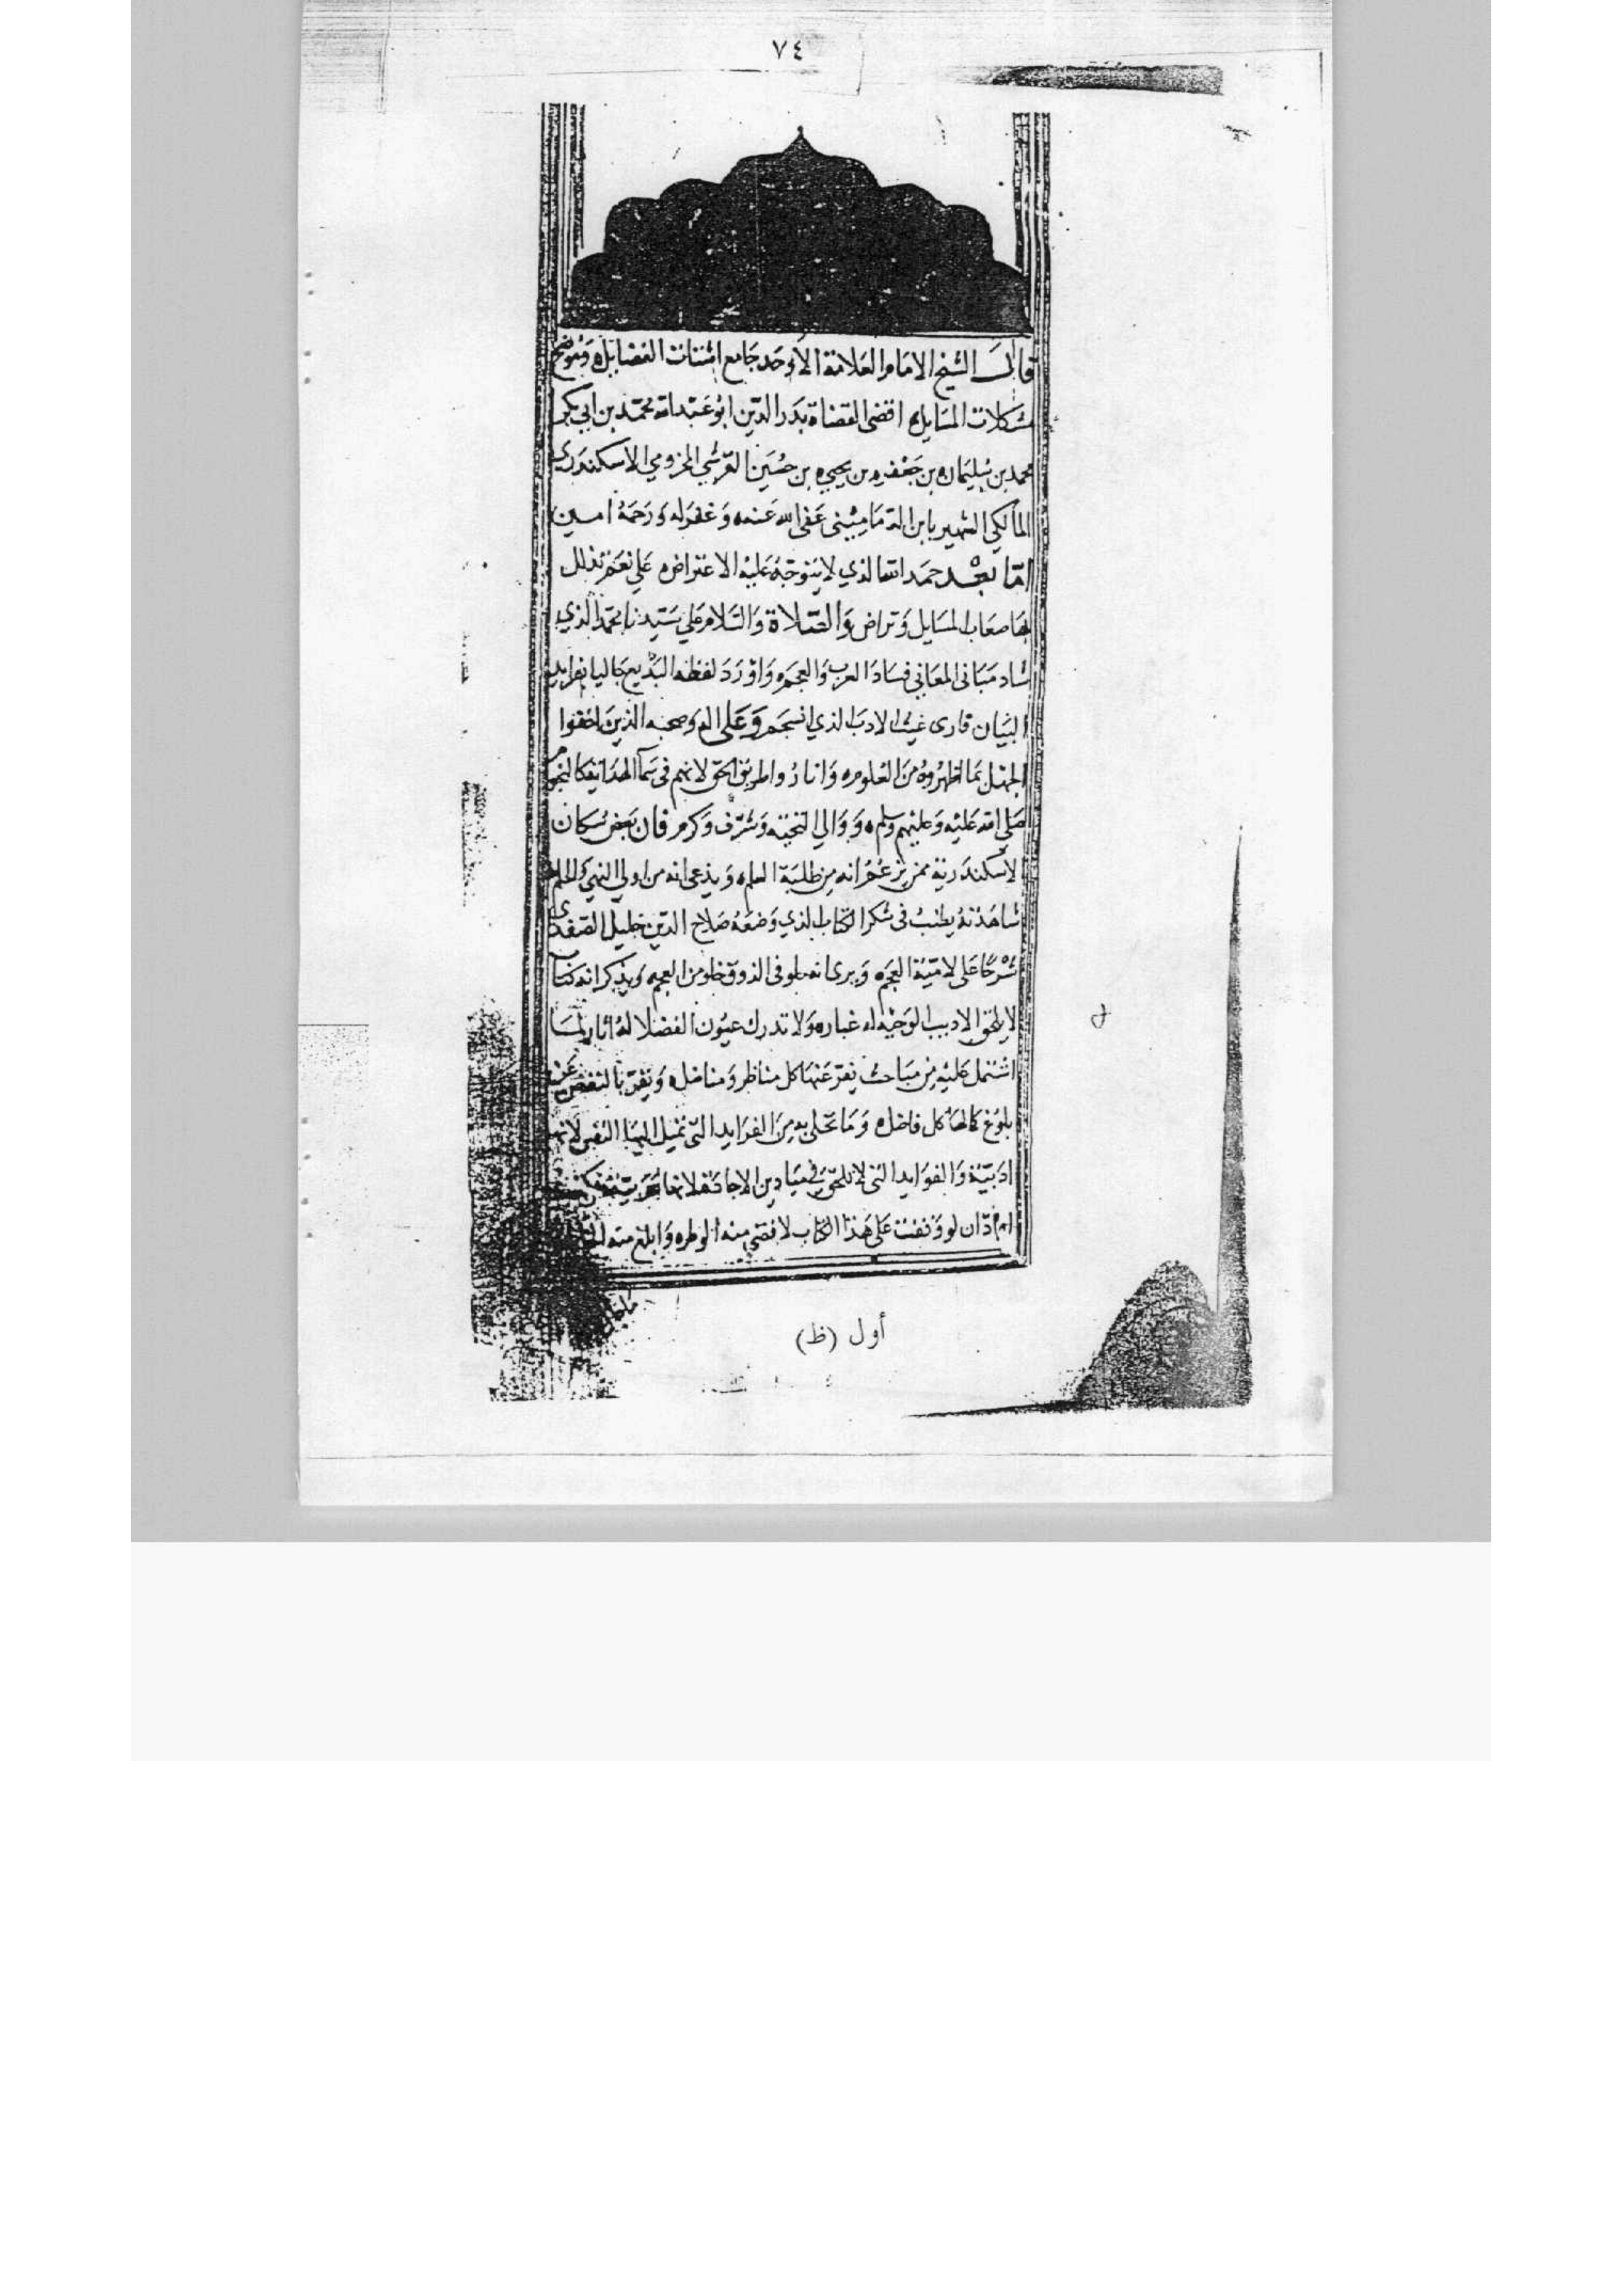 ٧٤
قال الشيخ الامام العلامة الأوحد جامع اشتات الفضايل وموضح
مشكلات المسايل اقضى القضاة بدر الدين ابو عبد الله محمد بن ابي بكر
محمد بن سليمان بن جعفر بن يحيى بن حسين القرشي المخزومي الاسكندري
المالكي الشهير بابن الدماميني عفى الله عنه وغفر له ورحمه امين
امّا بعْد حمد الله الذي لا يتوجه عليه الاعتراض على نعم يذلل
بها صعاب المسايل وتراض والصّلاة والسّلام على سيدنا محمد الذي
شاد مبانى المعاني فساد العرب والعجم واورد لفظه البديع حاليا بفرايد
البيان قارى غيث الادب الذي انسجم وعلى اله وصحبه الذين اخفوا
الجهل بما اظهروه من العلوم واناروا طريق الحق لانهم في سما الهداية كالنجوم
صلى الله عليه وعليهم وسلم ووالي التحية وشرف وكرم فان بعض سكان
الاسكندرية ممن يزعم انه من طلبة العلم ويدعى انه من اولي النهي والحلم
شاهدته يطنب في شكر الكتاب الذي وضعه صلاح الدين خليل الصفدى
شرحا على لامية العجم ويرى انه حلو فى الذوق خلو من العجم ويذكر انه كتاب
لا يلحق الاديب الوجيه له غبار ولا تدرك عيون الفضلا له اثار لما
اشتمل عليه من مباحث يفر عنها كل مناظر ومناضل ويقر بالنقص عن
بلوغ كمالها كل فاضل وما تحلى به من الفرايد التى تميل اليها النفس لانها
ادبيّة والفوايد التى لا تلحق في ميادين الاجادة لانها
ام دّان لو وقفت على هذا الكتاب لاقضي منه الوطر وابلغ منه
أول (ظ)